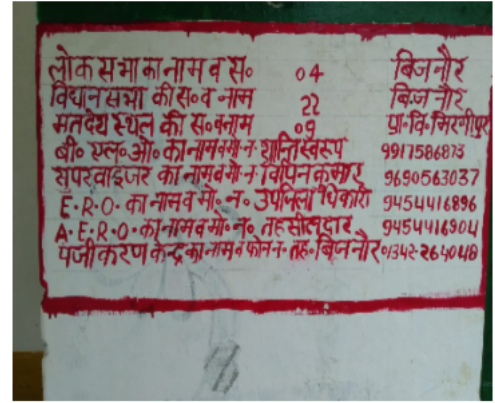 लोक सभा का नाम व स० 04 बिजनौर
विधान सभा की स० व नाम 22 बिजनौर
मतदेय स्थल की स० वनाम 09 प्रा० वि० मिरगीपुर
बी० एल० ओ० का नाम व मो० न० शान्तिस्वरुप 9917586873
सुपरवाइजर का नाम व मो० न० विपिन कुमार 9690563037
E.R.O. का नाम व मो० न० उपजिला धिकारी 9454416896
A.E.R.O. का नाम व मो० न० तहसीलदार 9454416904
पंजीकरण केन्द्र का नाम व फोन न० तह० बिजनौर 01342-264048